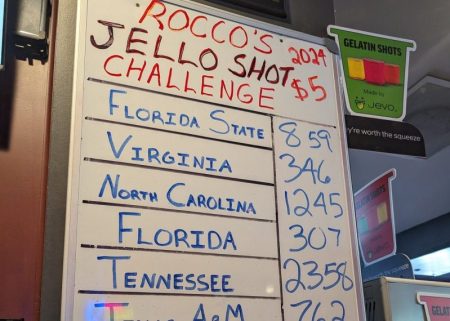 ROCCO'S 2024
JELLO SHOT $5
CHALLENGE
FLORIDA STATE 859
VIRGINIA 346
NORTH CAROLINA 1245
FLORIDA 307
TENNESSEE 2358
TEXAS A&M 762
GELATIN SHOTS
Made by
JEVO
're worth the squeeze
GELATIN